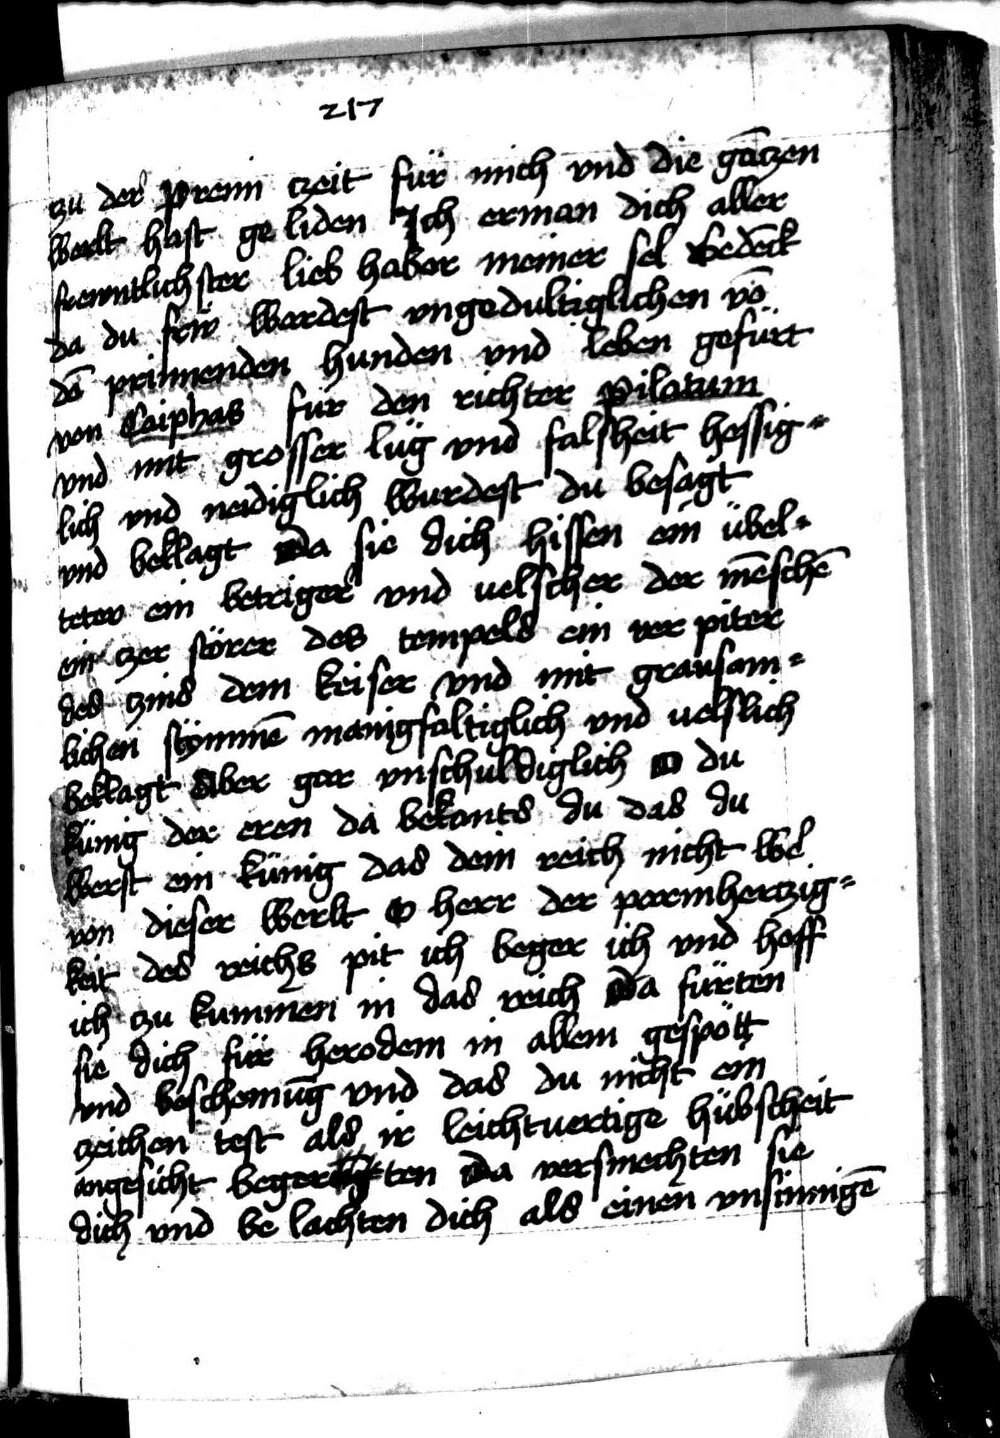 217
zu der Prenn tzeit für mich vnd die gātzen
werlt hast ge liden Ich erman dich aller
freuntlichster lieb haber meiner sel Gedēck
da du früe wordest vngedultiglichen vō
dē prinnenden hunden vnd leben gefürt
von Caiphas für den richter Pilatum
vnd mit grosser lüg vnd falsheit hessig⸗
lich vnd neidiglich wurdest du besagt
vnd beklagt Da sie dich hissen ein übel⸗
teter ein betriger vnd velscher der mēschē
ein zer störer des tempels ein ver piter
des zins dem keiser vnd mit grausam⸗
lichen stymmē manigfaltiglich vnd velslich
beklagt Aber gar vnschuldiglich O du
künig der eren da bekants du das du
werst ein künig das dein reich nicht wer
von dieser werlt O herr der parmhertzig⸗
keit des reichs pit ich beger ich vnd hoff
ich zu kummen in das reich Da fürten
sie dich für herodem in allem gespött
vnd beschemūg vnd das du nicht ein
zeichen test als ir leichtuertige hübscheit
angesicht begerten Da versmechten sie
dich vnd be lachten dich als einen vnsinnigē